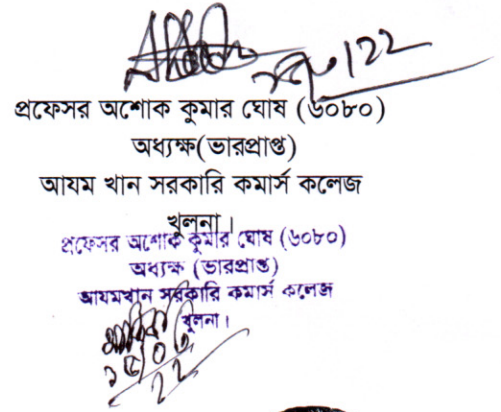 প্রফেসর অশোক কুমার ঘোষ (৬০৮০)
অধ্যক্ষ(ভারপ্রাপ্ত)
আযম খান সরকারি কমার্স কলেজ
খুলনা।
প্রফেসর অশোক কুমার ঘোষ (৬০৮০)
অধ্যক্ষ (ভারপ্রাপ্ত)
আযমখান সরকারি কমার্স কলেজ
খুলনা।